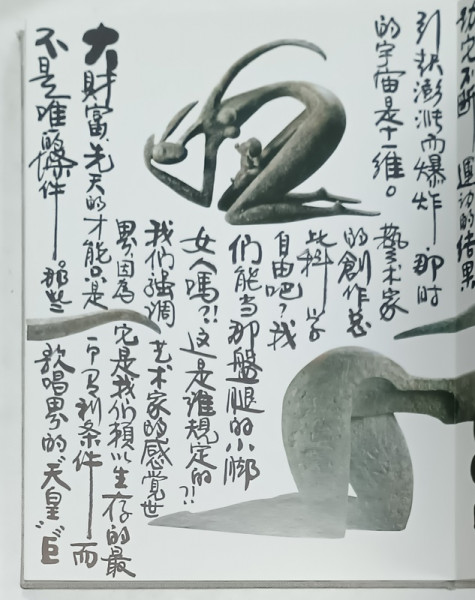 的结果
引起澎湃而爆炸。那时
的宇宙是十一维。
藝术家
的創作总
比科学
自由吧？我
们能当那盤腿的小脚
女人嗎？！这是谁規定的？！
我们强調艺术家的感覺世
界，因為它是我们賴以生存的最
大財富，先天的才能只是一个有利条件——而
不是唯一的條件——。那些歌唱界的“天皇”“巨